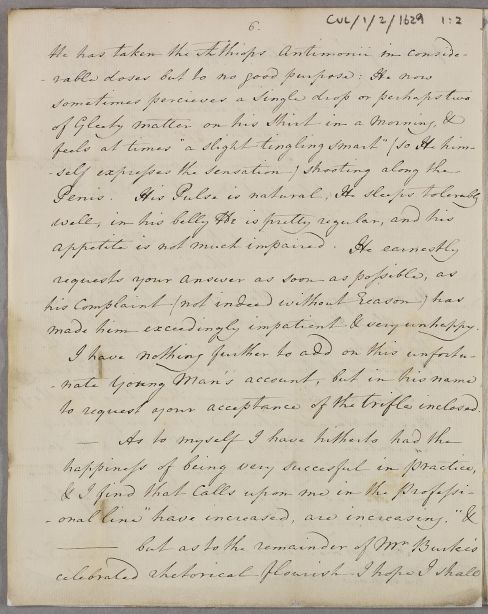 CUL/1/2/1629 1:2
6.
He has taken the Æthiops Antimonii in conside-
-rable doses but to no good purpose: He now
sometimes percieves a single drop or perhaps two
of Gleety matter on his Shirt in a morning, &
feels at times "a slight tingling smart" (so He him-
-self expresses the sensation) shooting along the
Penis. His Pulse is natural, He sleeps tolerably
well, in his belly He is pretty regular, and his
appetite is not much impaired. He earnestly
requests your answer as soon as possible, as
his Complaint (not indeed without reason) has
made him exceedingly impatient & very unhappy.
I have nothing further to add on this unfortu-
-nate Young Man's account, but in his name
to request your acceptance of the trifle inclosed.
— As to myself I have hitherto had the
happiness of being very succesful in practice,
& I find that Calls upon me in the "Professi-
-onal line" have increased, are increasing," &
— but as to the remainder of Mr Burke's
celebrated rhetorical flourish I hope I shall